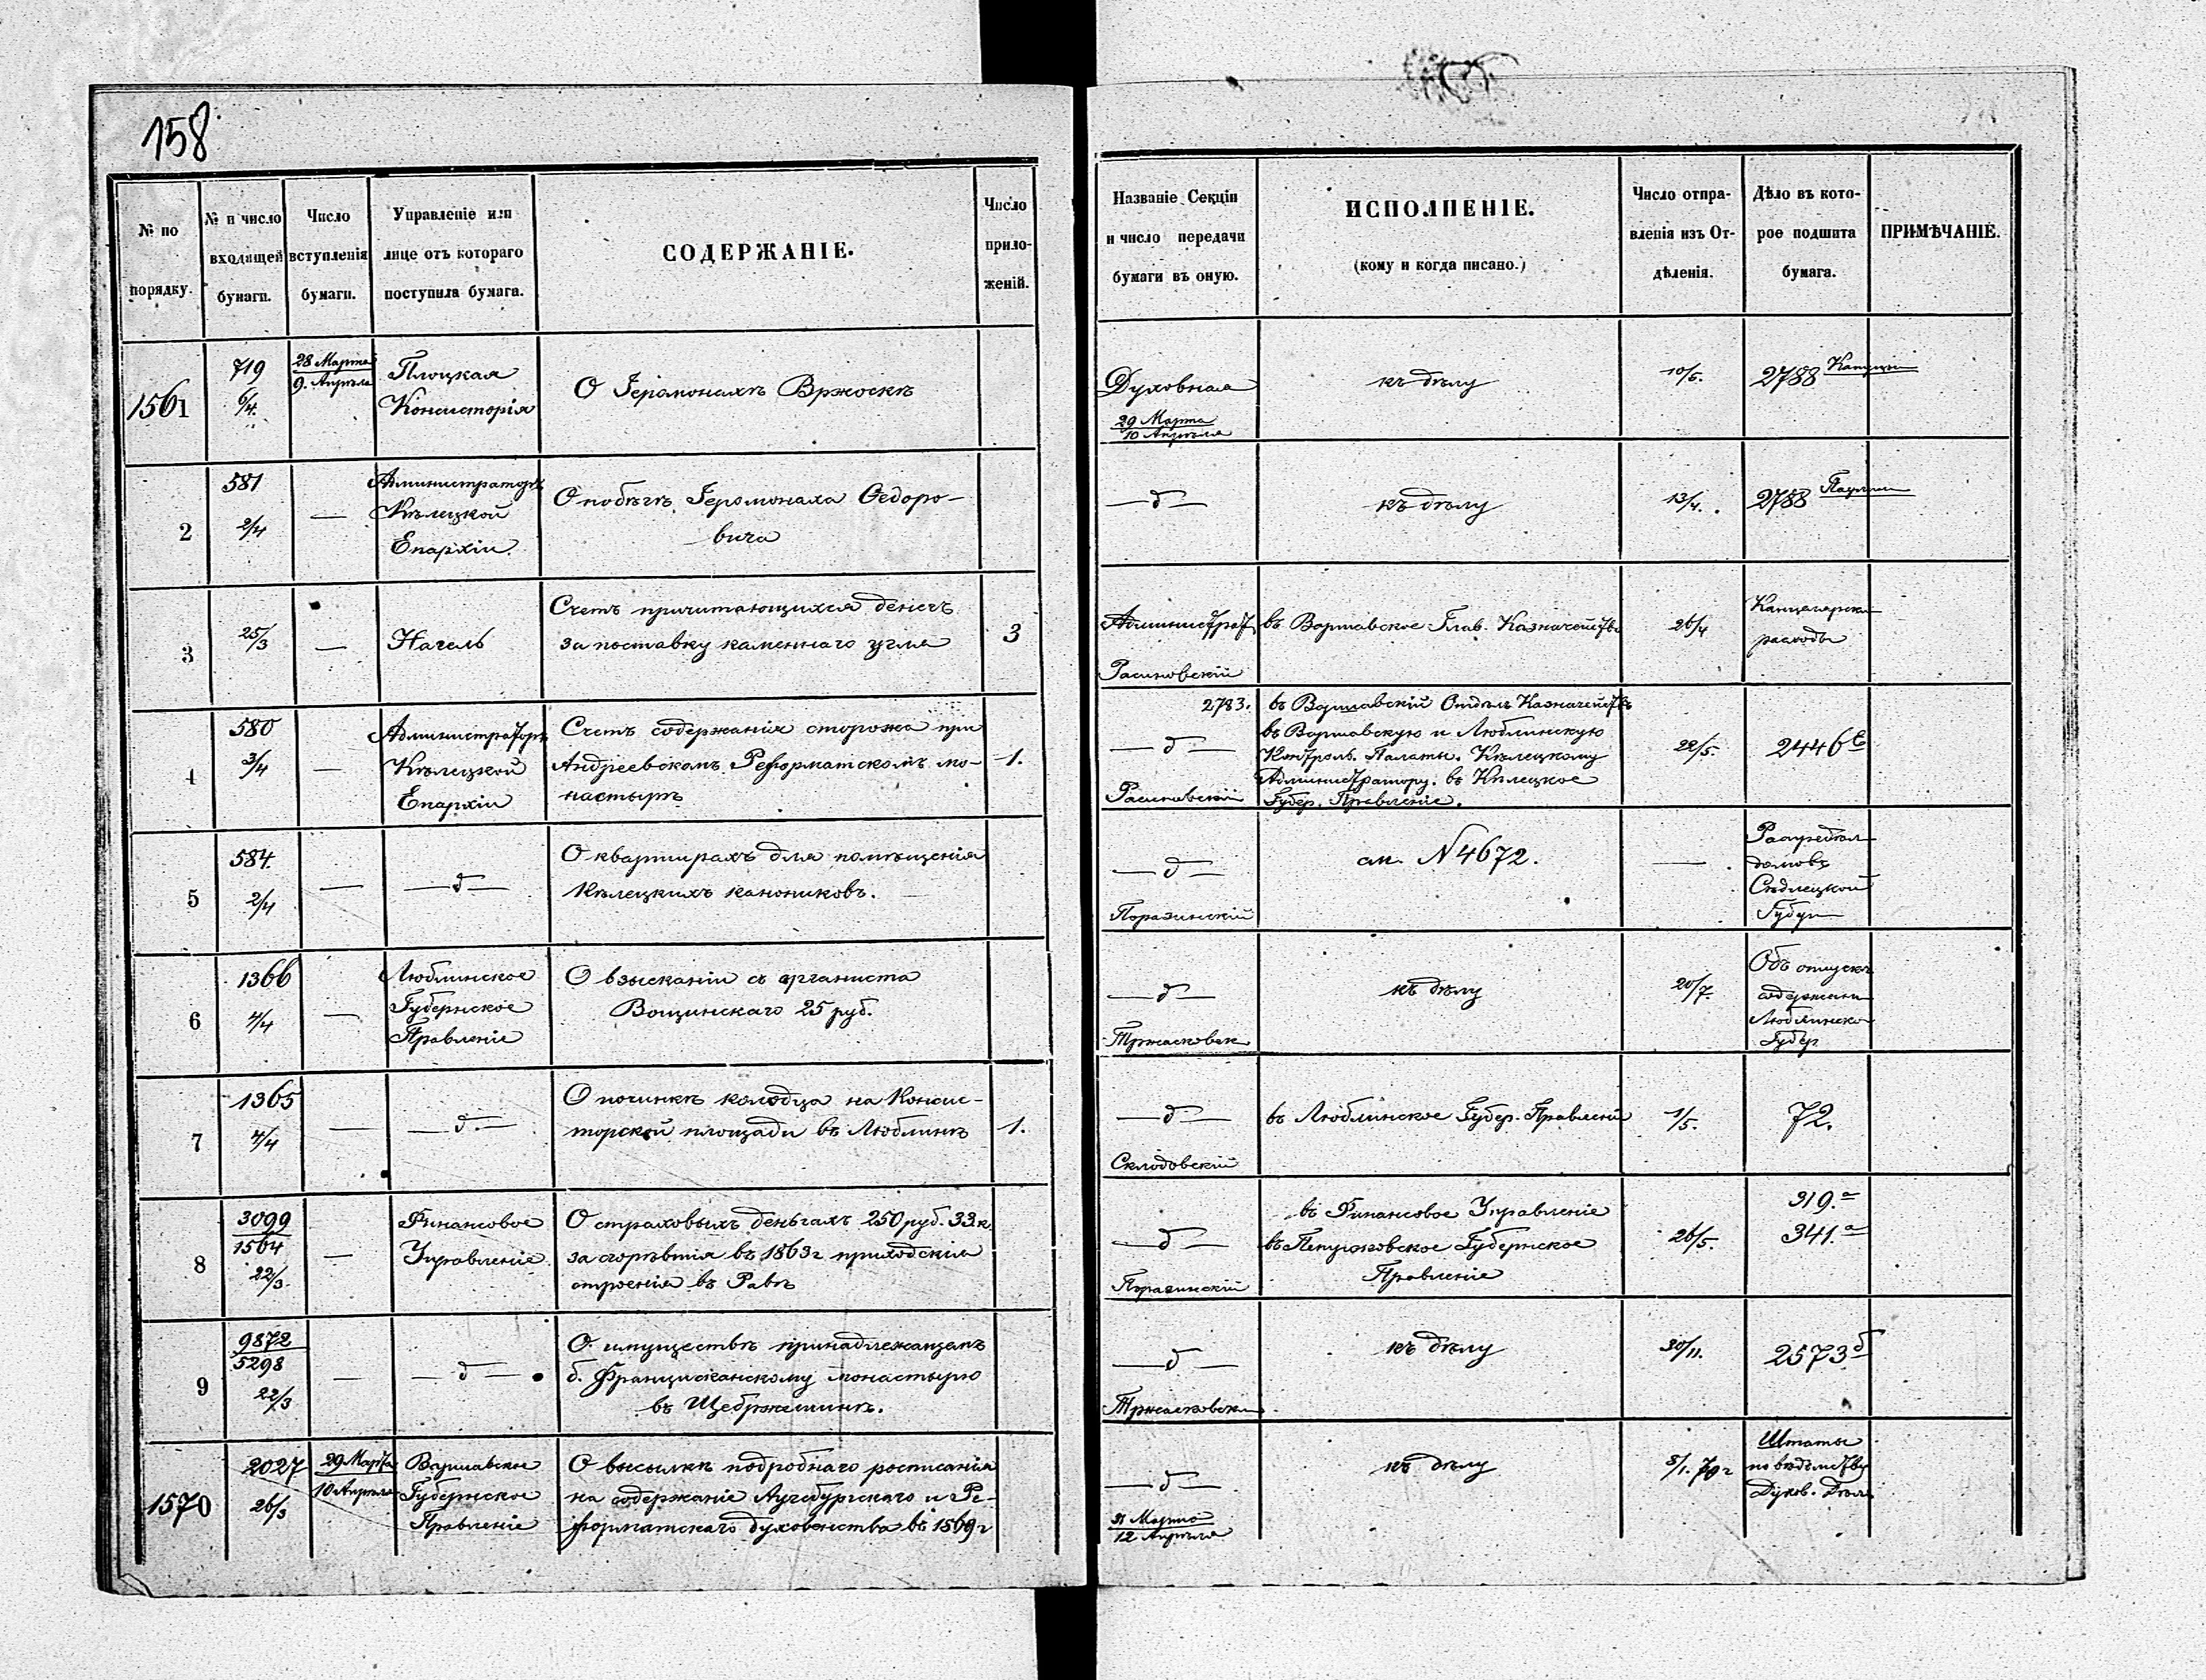 158
№ по порядку.
№ и число входящей бумаги.
Число вступленія бумаги.
Управленіе или лице отъ котораго поступила бумага.
СОДЕРЖАНІЕ.
Число приложеній.
Названіе Секціи и число передачи бумаги въ оную.
ИСПОЛНЕНІЕ.
(кому и когда писано.)
Число отпра-
вленія изъ От-
дѣленія.
Дѣло въ кото-
рое подшита
бумага.
ПРИМѢЧАНІЕ.
1561
719
6/4.
28 Марта
9. Апрѣля
Плоцкая
Консисторія
О Іеромонахѣ Вржоскѣ
Духовная
29 Марта
10 Апрѣля
къ дѣлу
10/5.
2788
2
581
2/4
—
Администраторъ
Кѣлецкой
Епархіи
О побѣгѣ Іеромонаха Ѳедоро-
вича
— д —
къ дѣлу
13/4.
2788
3
25/3
—
Нагель
Счетъ причитающихся денегъ
за поставку каменнаго угля
3
Администрат
въ Варшавское Глав. Казначейство
26/4
расходы
4
580
3/4
—
Администраторъ
Кѣлецкой
Епархіи
Счетъ содержанія сторожа при
Андреевскомъ Реформатскомъ мо-
настырѣ
1.
2783.
— д —
въ Варшавскій Отдѣл. Казначейств
въ Варшавскую и Люблинскую
Контрол. Палаты. Кѣлецкому
Администратору. въ Кѣлецкое
Губер. Правленіе.
22/5.
2446
5
584.
2/4
—
— д —
О квартирахъ для помѣщенія
Кѣлецкихъ канониковъ.
— д —
Поразинскій
см. № 4672.
—
домовъ
Сѣдлецкой
6
1366
4/4
—
Люблинское
Губернское
Правленіе
О взысканіи съ органиста
Вощинскаго 25 руб.
— д —
къ дѣлу
20/7.
Объ отпускѣ
содержанія
Люблинско
Губер
7
1365
4/4
—
— д —
О починкѣ колодца на Консис-
торской площади въ Люблинѣ
1.
— д —
Склодовскій
въ Люблинское Губер. Правлені
1/5.
72.
8
3099
1564
22/3.
—
Финансовое
Управленіе
О страховыхъ деньгахъ 250 руб. 33 к.
за сгорѣвшія въ 1863 г приходскія
строенія въ Равѣ
— д —
Поразинскій
въ Финансовое Управленіе
въ Петроковское Губернское
Правленіе
26/5.
319. а
341. а
9
9872
5298
22/3
—
— д —
О имуществѣ принадлежащемъ
б. Францисканскому монастырю
въ Щебржешинѣ.
— д —
къ дѣлу
30/11.
2573 б
1570
2027
26/3
29 Марта
10 Апрѣля
Варшавское
Губернское
Правленіе
О высылкѣ подробнаго росписанія
на содержаніе Аугсбургскаго и Ре-
форматскаго духовенства въ 1869 г
— д —
31 Марта
12 Апрѣля
къ дѣлу
8/1. 70 г
Штаты
по вѣдомству
Духов. Дѣлъ